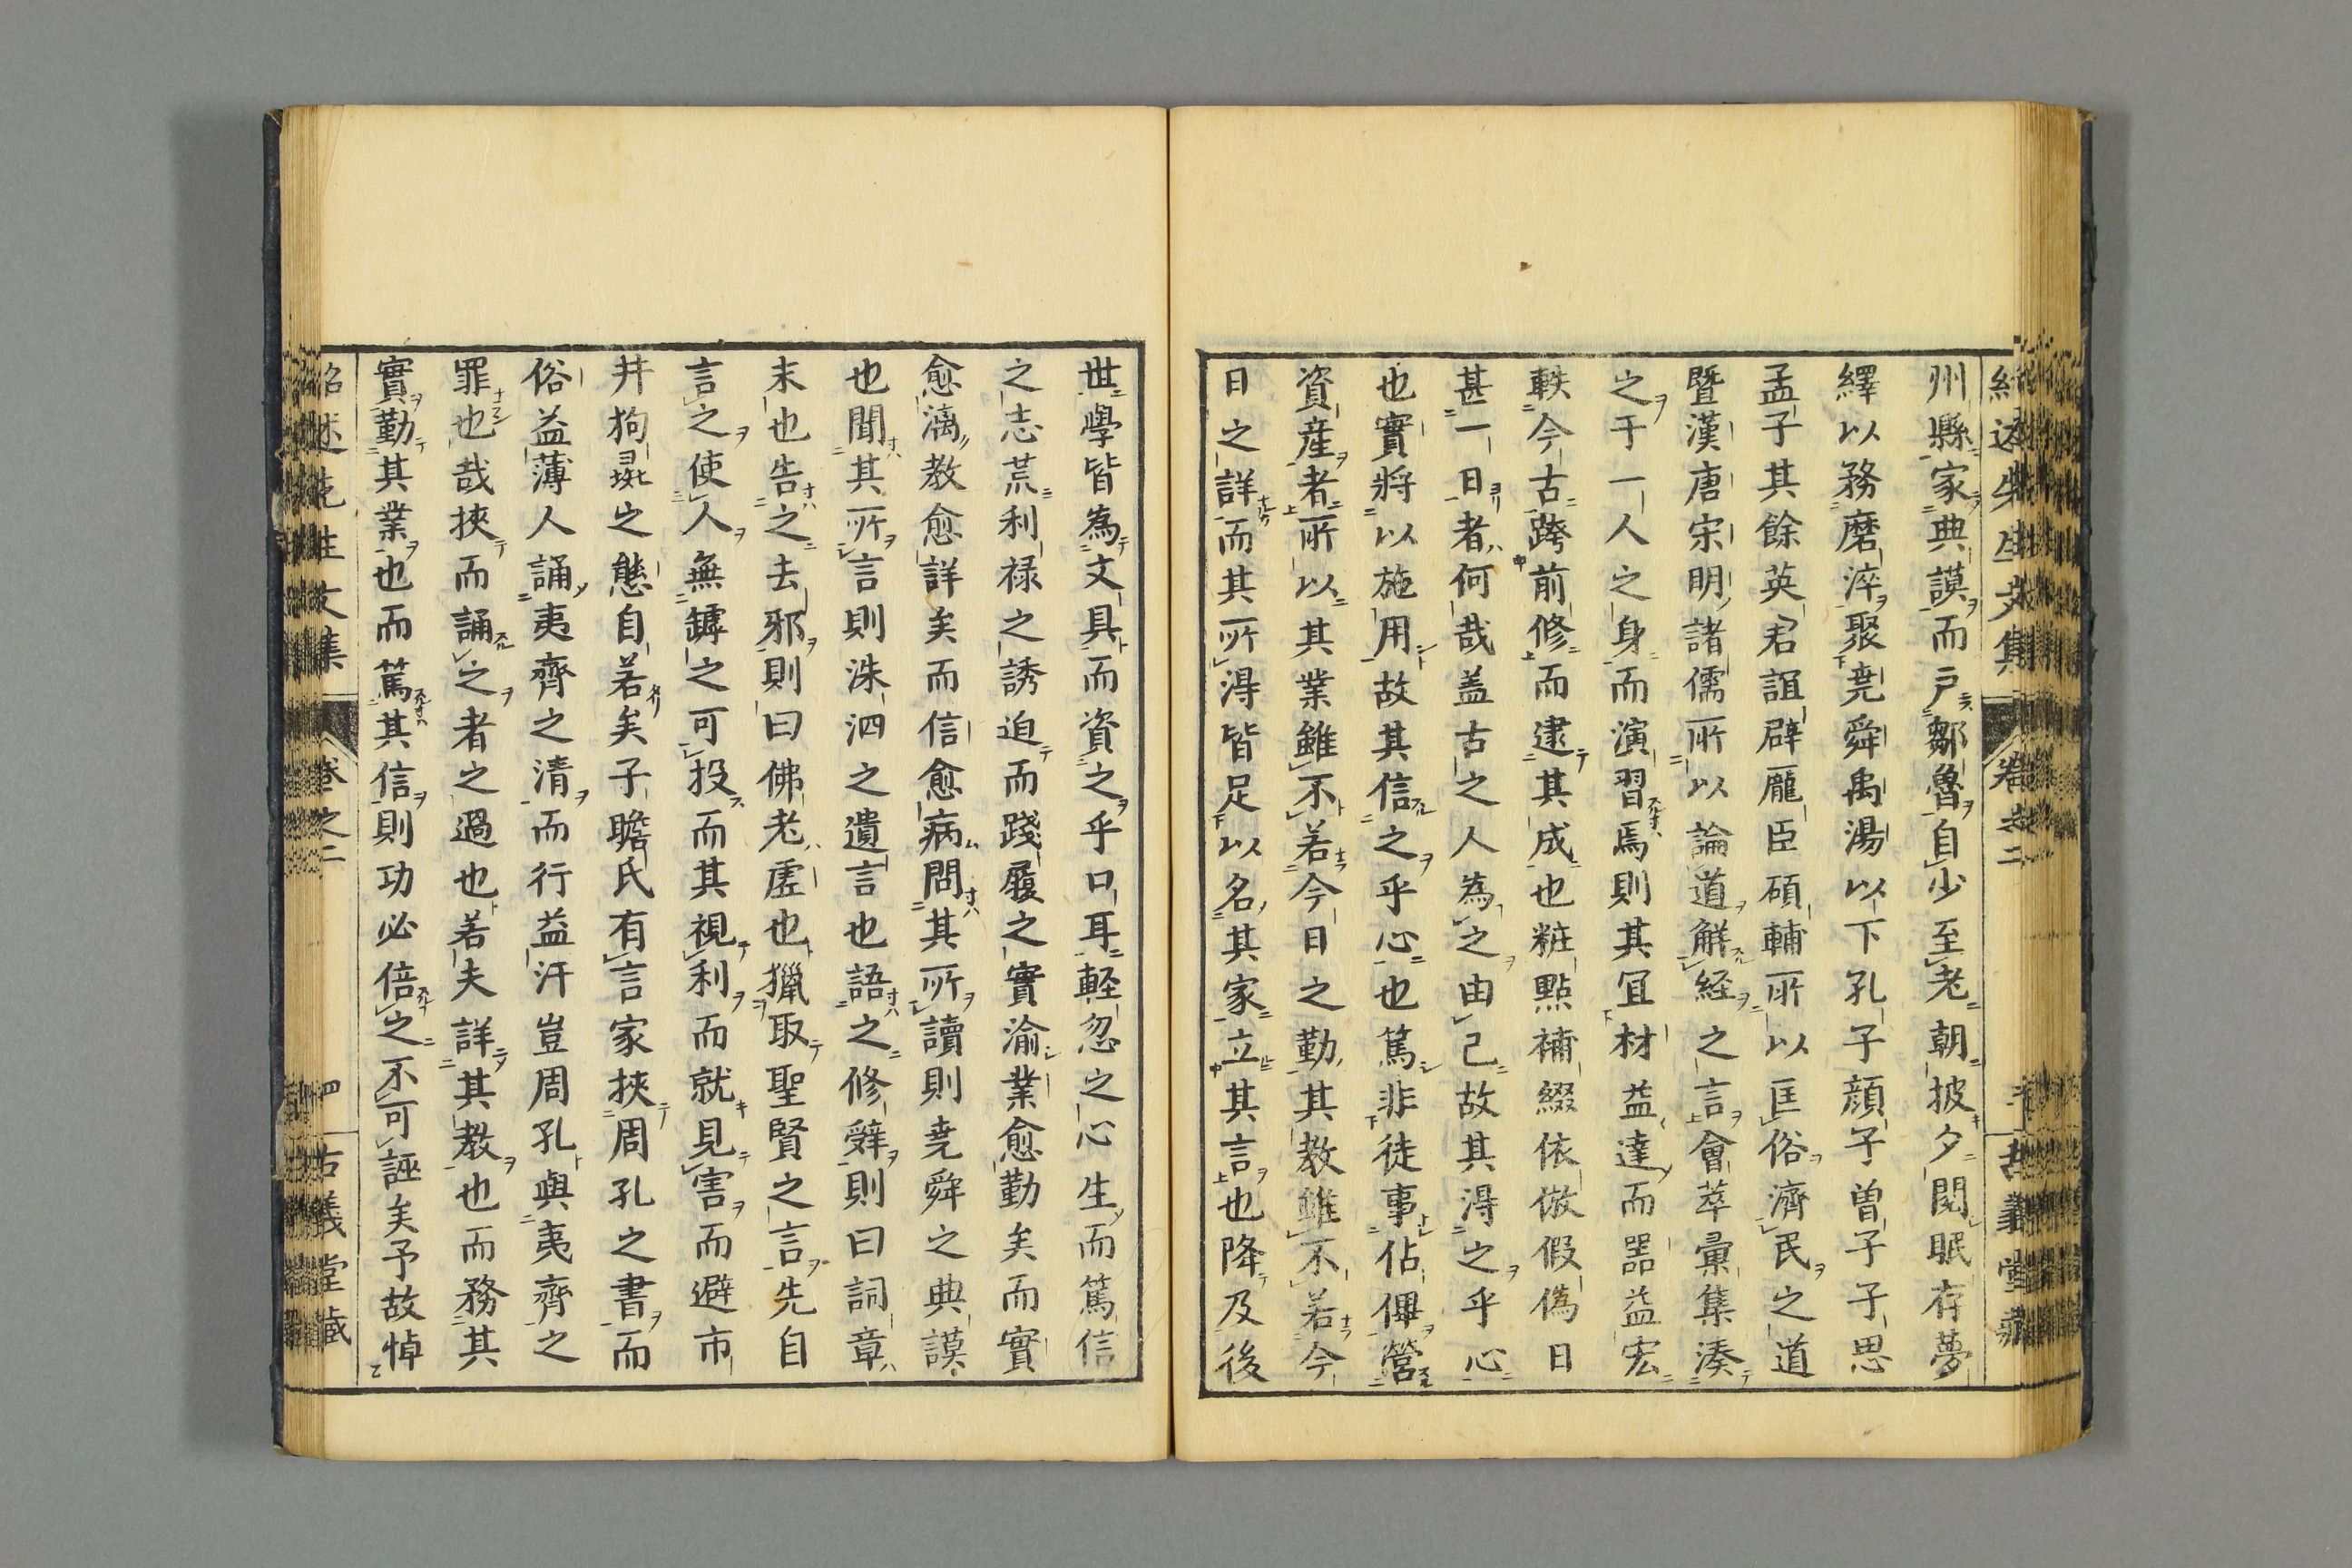 州縣家典謨而戸鄒魯自少至老朝披夕閲眠存夢
繹以務磨淬聚堯舜禹湯以下孔子顔子曽子子思
孟子其餘英君誼辟龐臣碩輔所以匡俗濟民之道
曁漢唐宋明諸儒所以論道解経之言會萃彙集湊
之于一人之身而演習焉則其冝材益達而噐益宏
軼今古跨前修而逮其成也粧點補綴依倣假偽日
甚一日者何哉盖古之人為之由己故其得之乎心
也實將以施用故其信之乎心也篤非徒事佔俾營
資産者所以其業雖不若今日之勤其教雖不若今
日之詳而其所得皆足以名其家立其言也降及後
世學皆為文具而資之乎口耳輕忽之心生而篤信
之志荒利禄之誘迫而踐履之實渝業愈勤矣而實
愈漓教愈詳矣而信愈病問其所讀則堯舜之典謨
也聞其所言則洙泗之遺言也語之修辤則曰詞章
末也告之去邪則曰佛老虚也獵取聖賢之言先自
言之使人無罅之可投而其視利而就見害而避市
井狗之態自若矣子瞻氏有言家挾周孔之書而
俗益薄人誦夷齊之清而行益汙豈周孔與夷齊之
罪也哉挾而誦之者之過也若夫詳其教也而務其
實勤其業也而篤其信則功必倍之不可誣矣予故悼
紹述先生文集 卷之二 四 古義堂藏